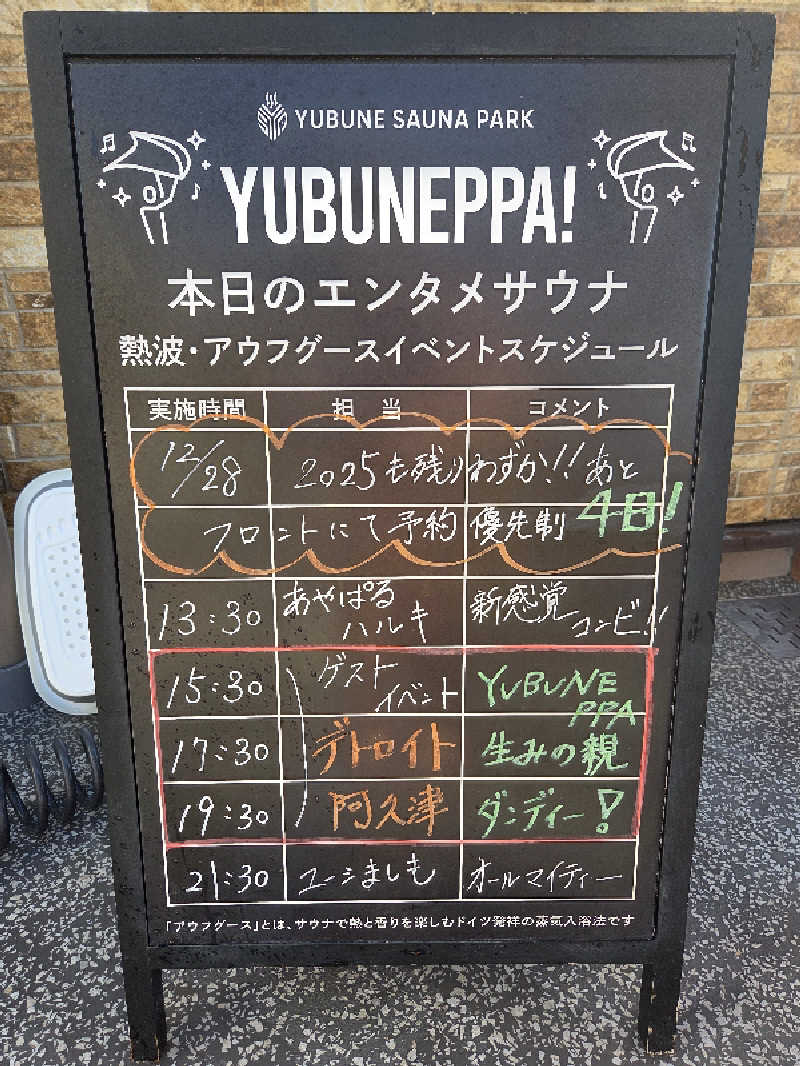 YUBUNE SAUNA PARK
YUBUNEPPA!
本日のエンタメサウナ
熱波・アウフグースイベントスケジュール
実施時間 担当 コメント
12/28 2025も残りわずか!! あと
フロントにて予約優先制 4日!
13:30 あやぱる ハルキ 新感覚 コンビ!!
15:30 ゲスト イベント YUBUNE PPA
17:30 デトロイト 生みの親
19:30 阿久津 ダンディー!
21:30 ユーシましも オールマイティー
「アウフグース」とは、サウナで熱と香りを楽しむドイツ発祥の蒸気入浴法です